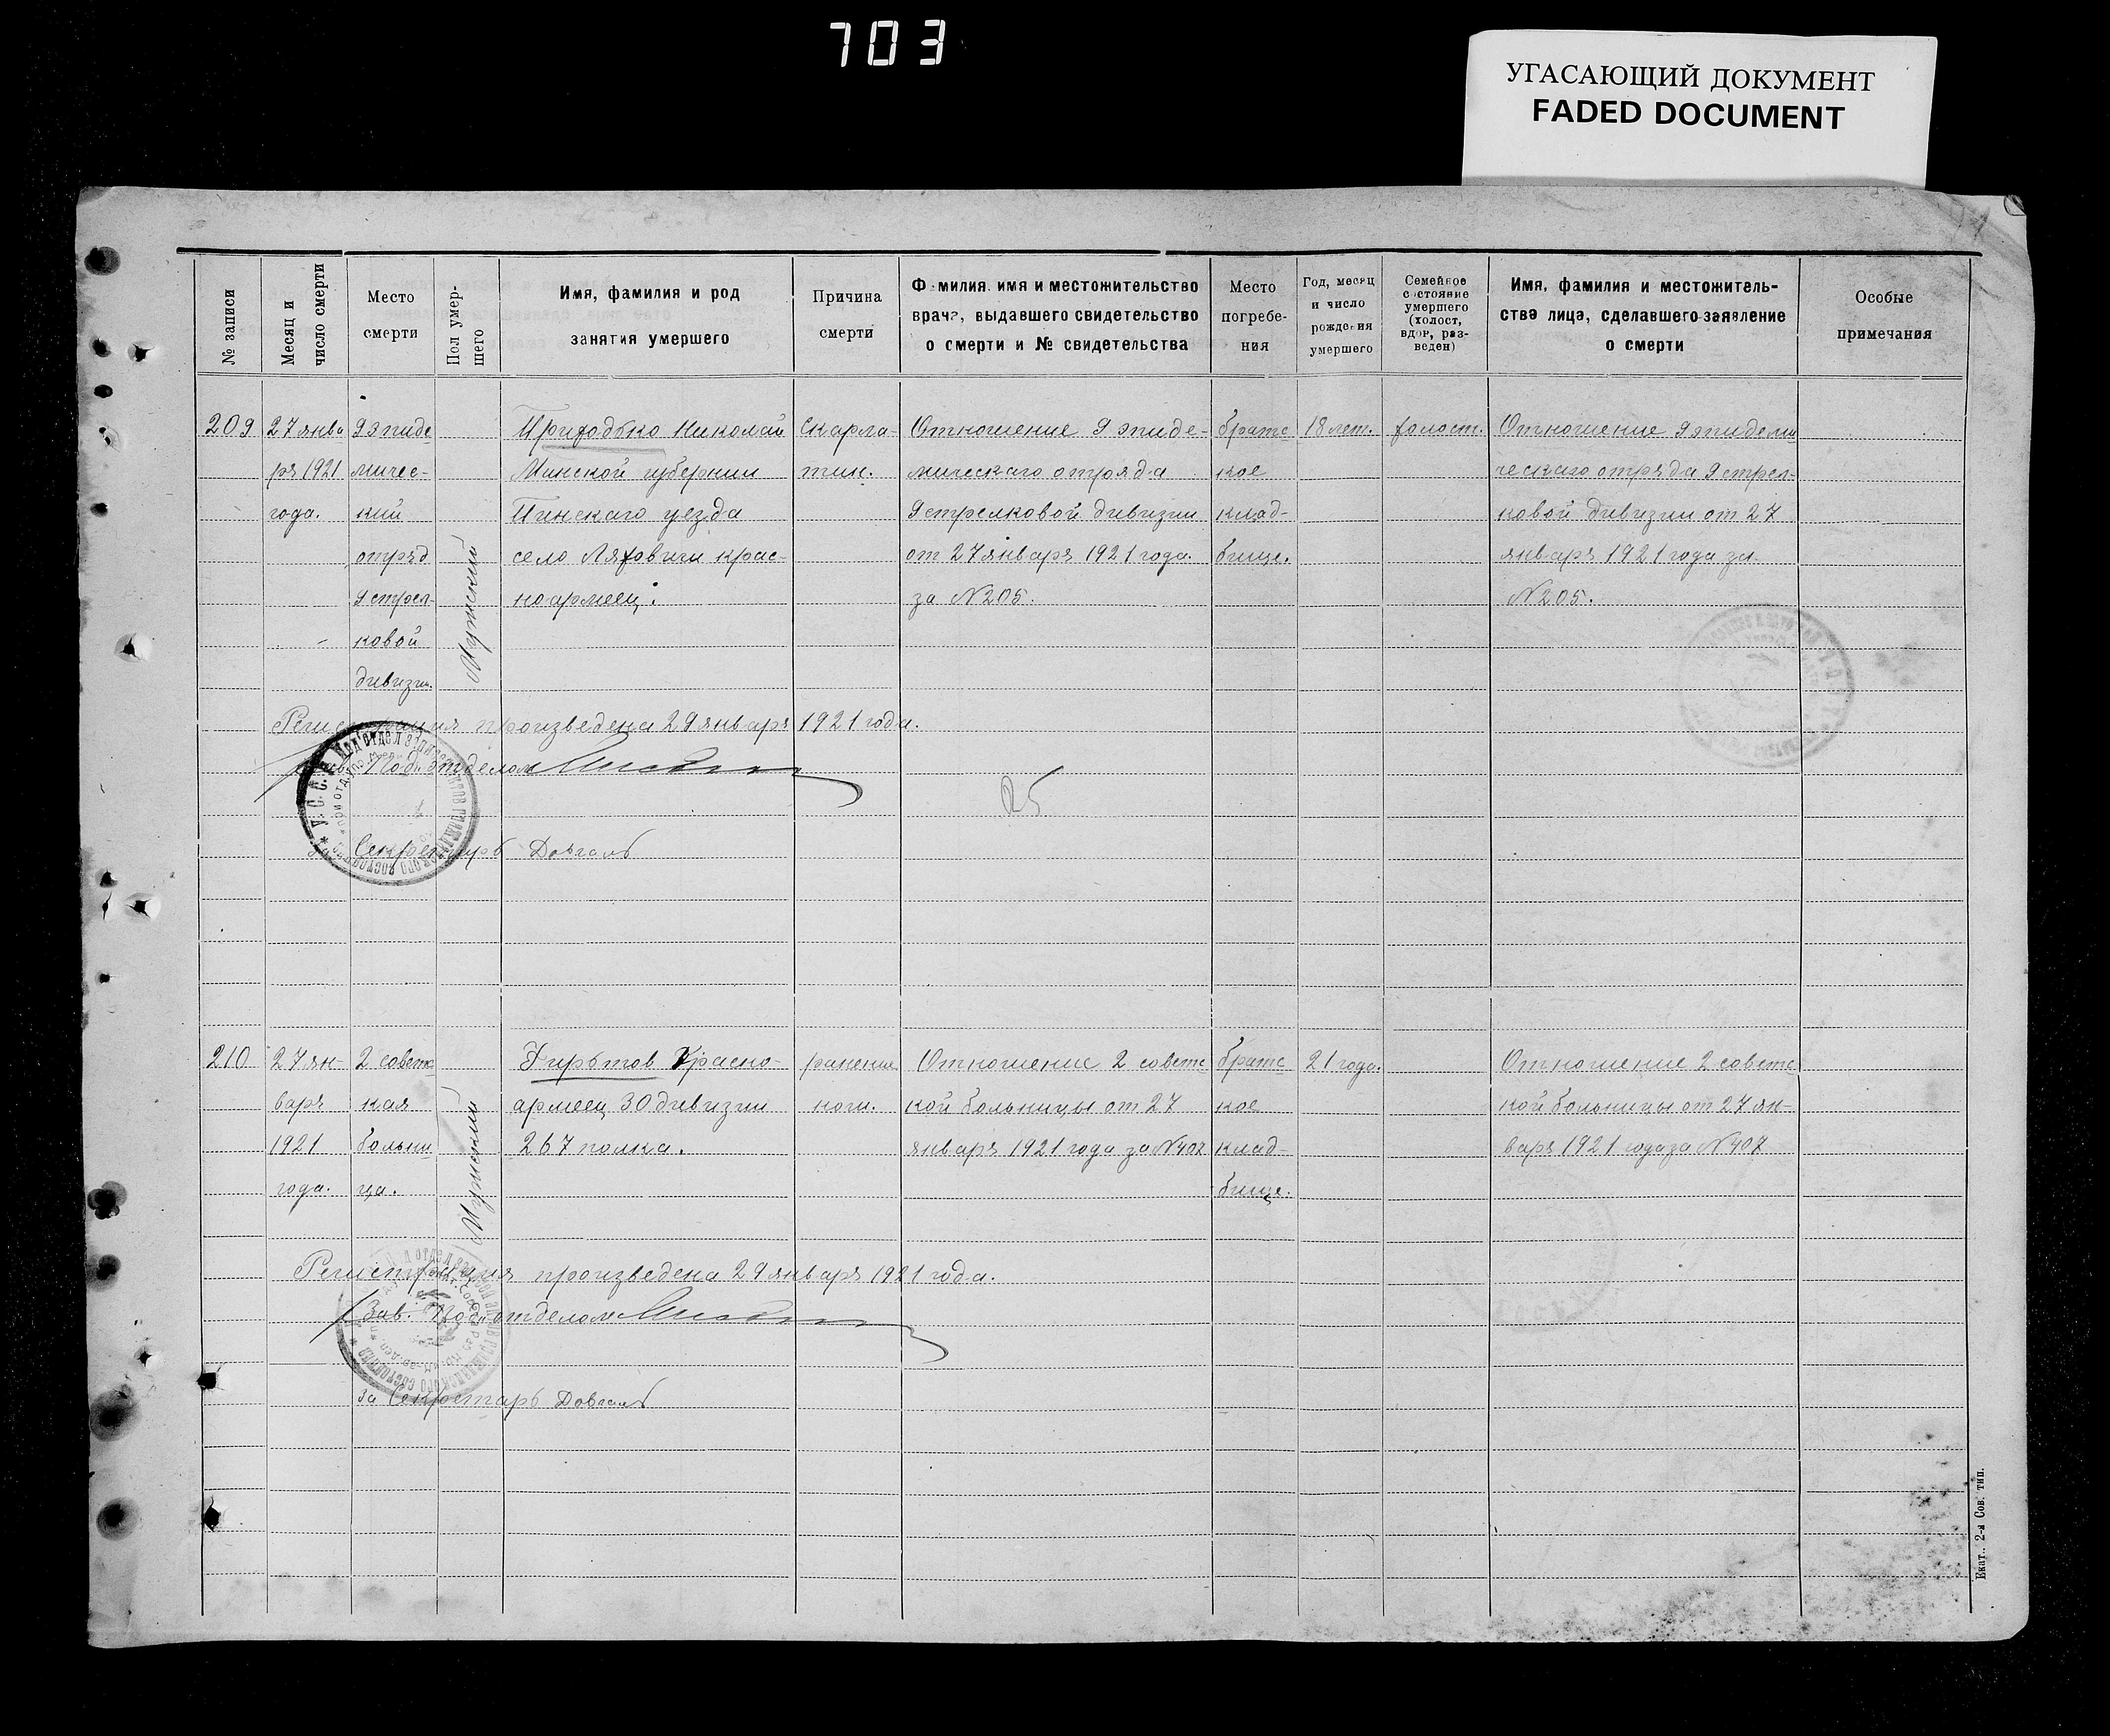 703
УГАСАЮЩИЙ ДОКУМЕНТ
FADED DOCUMENT
№ записи
Месяц и
число смерти
Место
смерти
Пол умер-
шего
Имя, фамилия и род
занятия умершего
Причина
смерти
Фамилия, имя и местожительство
врача, выдавшего свидетельство
о смерти и № свидетельства
Место
погребе-
ния
Год, месяц
и число
рождения
умершего
Семейное
состояние
умершего
(холост,
вдов, раз-
веден)
Имя, фамилия и местожитель-
ство лица, сделавшего заявление
о смерти
Особые
примечания
209
27 янва
ря 1921
года.
9 эпиде
мичес-
кий
отряд
9 стрел-
ковой
дивизии.
Мужский
Приходько Николай
Минской губернии
Пинскаго уезда
село Ляховичи крас-
ноармеец.
Скарла-
тин.
Отношение 9 эпиде-
мическаго отряда
9 стрелковой дивизии
от 27 января 1921 года.
за N 205.
братс
кое
клад-
бище.
18 лет.
холост.
Отношение 9 эпидеми
ческаго отряда 9 стрел-
ковой дивизии от 27
января 1921 года за
N 205.
Регистрация произведена 29 января 1921 года.
Зав. Подотделом
25
за Секретарь Довгаль
210
27 ян-
варя
1921
года.
2 советс
кая
больни
ца.
Мужский
Хирьтов Красно-
армеец 30 дивизии
267 полка.
ранение
ноги.
Отношение 2 советс
кой больницы от 27
января 1921 года за N 407
братс
кое
клад-
бище.
21 года.
Отношение 2 советс
кой больницы от 27 ян-
варя 1921 года за N 407
Регистрация произведена 29 января 1921 года.
Зав. Подотделом
за Секретарь Довгаль
Екат., 2-я Сов. тип.